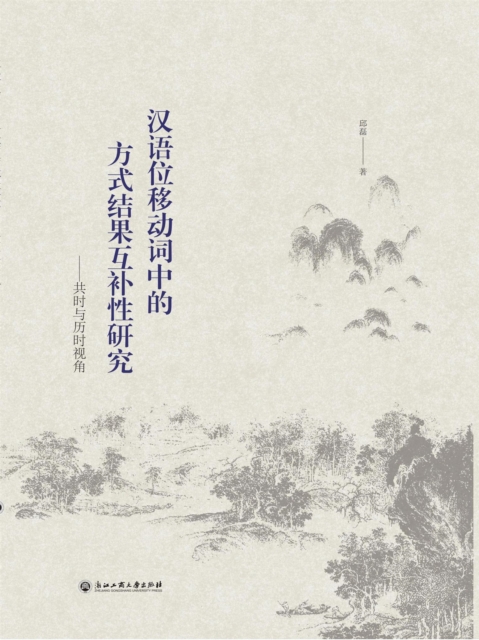 汉语位移动词中的
方式结果互补性研究
——共时与历时视角
邱磊——著
浙江工商大学出版社
ZHEJIANG GONGSHANG UNIVERSITY PRESS